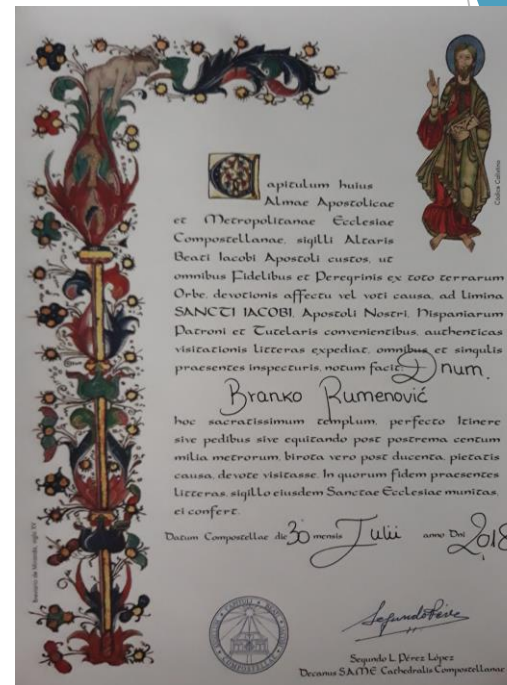 Capitulum huius
Almae Apostolicae
et Metropolitanae Ecclesiae
Compostellanae, sigilli Altaris
Beati Iacobi Apostoli custos, ut
omnibus Fidelibus et Peregrinis ex toto terrarum
Orbe, devotionis affectu vel voti causa, ad limina
SANCTI IACOBI, Apostoli Nostri, Hispaniarum
Patroni et Tutelaris convenientibus, authenticas
visitationis litteras expediat, omnibus et singulis
praesentes inspecturis, notum facit: Dnum.
Branko Rumenović
hoc sacratissimum templum, perfecto Itinere
sive pedibus sive equitando post postrema centum
milia metrorum, birota vero post ducenta, pietatis
causa, devote visitasse. In quorum fidem praesentes
litteras, sigillo eiusdem Sanctae Ecclesiae munitas,
ei confert.
Datum Compostellae die 30 mensis Julii anno Dni 2018
Segundo L. Pérez López
Decanus S.A.M.E. Cathedralis Compostellanae
Códice Calixtino